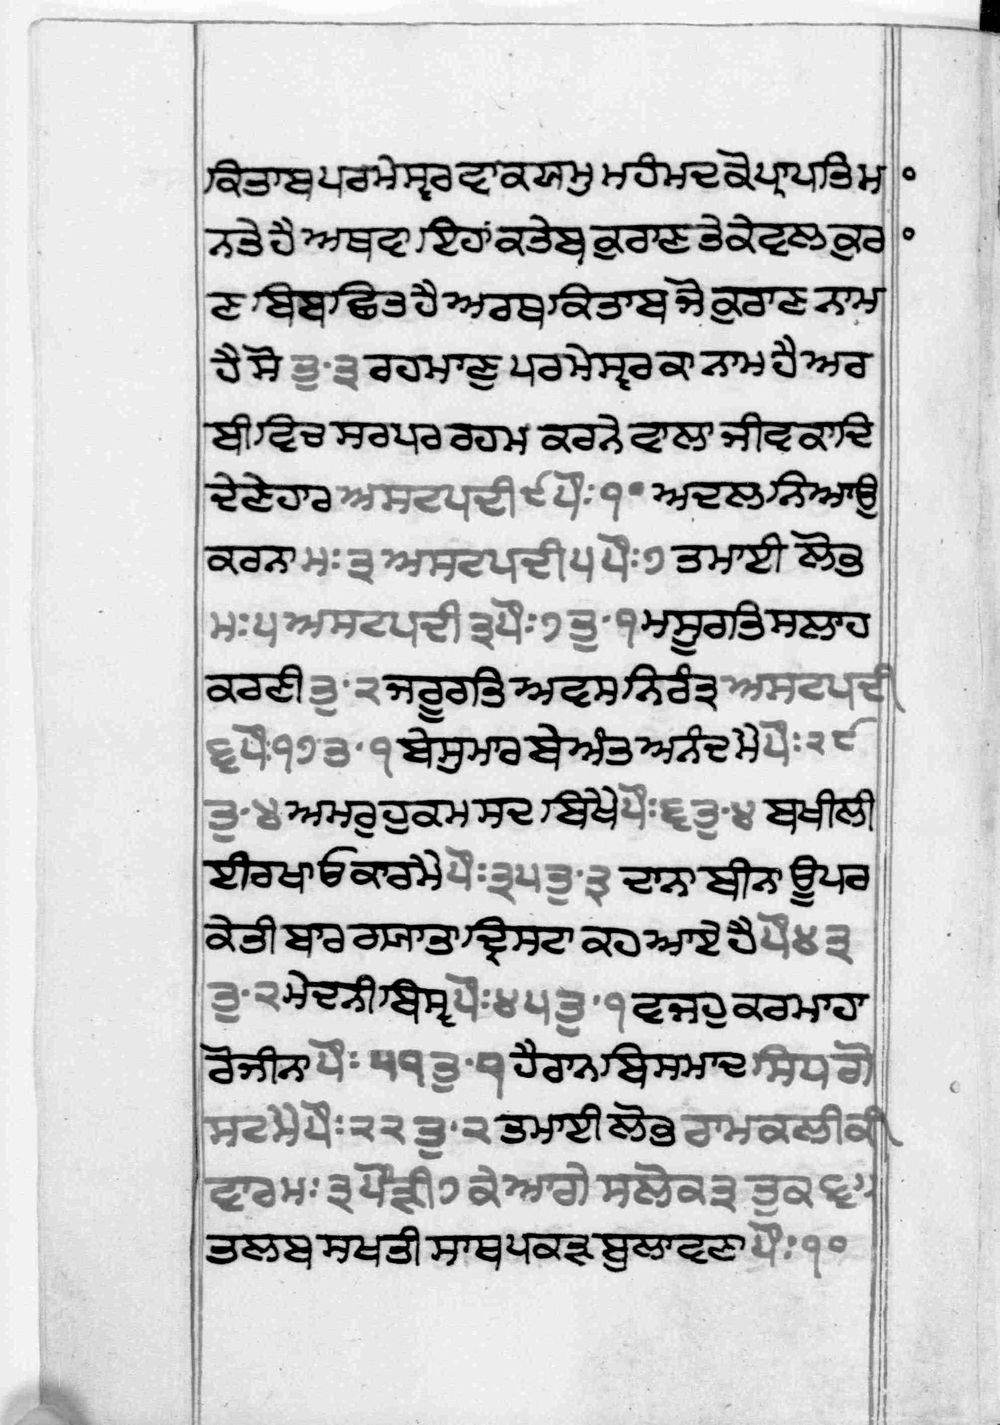 ਕਿਤਾਬ ਪਰਮੇਸ੍ਵਰ ਵਾਕਯ ਮੁ ਮਹੰਮਦ ਕੋ ਪ੍ਰਾਪਤਿ ਮ
ਨਤੇ ਹੈ ਅਥਵਾ ਇਹਾਂ ਕਤੇਬ ਕੁਰਾਣ ਤੇ ਕੇਵਲ ਕੁਰ
ਣ ਬਿਬਛਿਤ ਹੈ ਅਰਥ ਕਿਤਾਬ ਜੋ ਕੁਰਾਣ ਨਾਮ
ਹੈ ਸੋ ਤੁ·੩ ਰਹਮਾਣੁ ਪਰਮੇਸ੍ਵਰ ਕਾ ਨਾਮ ਹੈ ਅਰ
ਬੀ ਵਿਚ ਸਰਪਰ ਰਹਮ ਕਰਨੇ ਵਾਲਾ ਜੀਵਕਾਦਿ
ਦੇਣੇਹਾਰ ਅਸਟਪਦੀ ੯ ਪੌਃ ੧੦ ਅਦਲ ਨਿਆਉ
ਕਰਨਾ ਮਃ ੩ ਅਸਟਪਦੀ ੫ ਪੌਃ ੭ ਤਮਾਈ ਲੋਭੁ
ਮਃ ੫ ਅਸਟਪਦੀ ੩ ਪੌਃ ੭ ਤੁ·੧ ਮਸੂਰਤਿ ਸਲਾਹ
ਕਰਣੀ ਤੁ·੨ ਜਰੂਰਤਿ ਅਵਸ ਨਿਰੰਤ੍ਰ ਅਸਟਪਦੀ
੬ ਪੌ ੧੭ ਤ·੧ ਬੇਸੁਮਾਰ ਬੇਅੰਤ ਅਨੰਦ ਮੈ ਪੌਃ ੨੯
ਤੁ·੪ ਅਮਰੁ ਹੁਕਮ ਸਦ ਬਿਖੇ ਪੌਃ ੬ ਤੁ·੪ ਬਖੀਲੀ
ਈਰਖਾ ਓਕਾਰ ਮੈ ਪੌਃ ੩੫ ਤੁ·੩ ਦਾਨਾ ਬੀਨਾ ਊਪਰ
ਕੇਤੀ ਬਾਰ ਗਯਾਤਾ ਦ੍ਰਿਸਟਾ ਕਹ ਆਏ ਹੈ ਪੌ ੪੩
ਤੁ·੨ ਮੇਦਨੀ ਬਿਸ੍ਵ ਪੌਃ ੪੫ ਤੁ·੧ ਵਜਹੁ ਕਰਮਾਹਾ
ਰੋਜੀਨਾ ਪੌਃ ੫੧ ਤੁ·੧ ਹੈਰਾਨ ਬਿਸਮਾਦ ਸਿਧ ਗੋ
ਸਟ ਮੈ ਪੌਃ ੨੨ ਤੁ·੨ ਤਮਾਈ ਲੋਭੁ ਰਾਮਕਲੀ ਕੀ
ਵਾਰ ਮਃ ੩ ਪੌੜੀ ੭ ਕੇ ਆਗੇ ਸਲੋਕ ੩ ਤੁਕ ੬
ਤਲਬ ਸਖਤੀ ਸਾਥ ਪਕੜ ਬੁਲਾਵਣਾ ਪੌਃ ੧੦